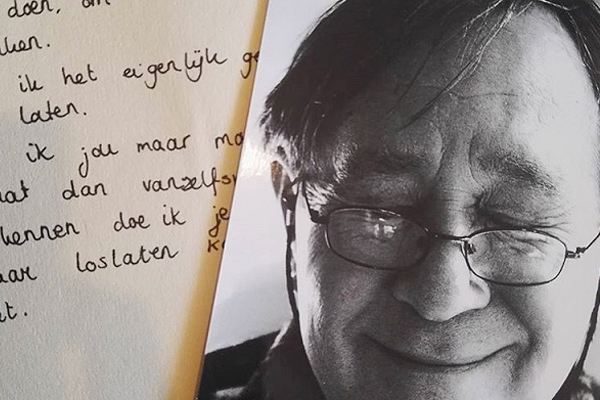 doen, om
ken.
ik het eigenlijk ge
laten.
ik jou maar mo
at dan vanzelfs
kennen doe ik je
aar loslaten k
t.